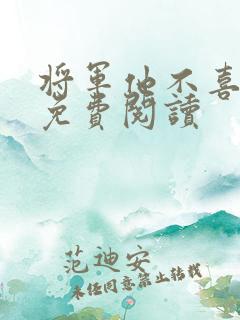 將軍他不喜
免費閱讀
范迪安
未经同意禁止转载